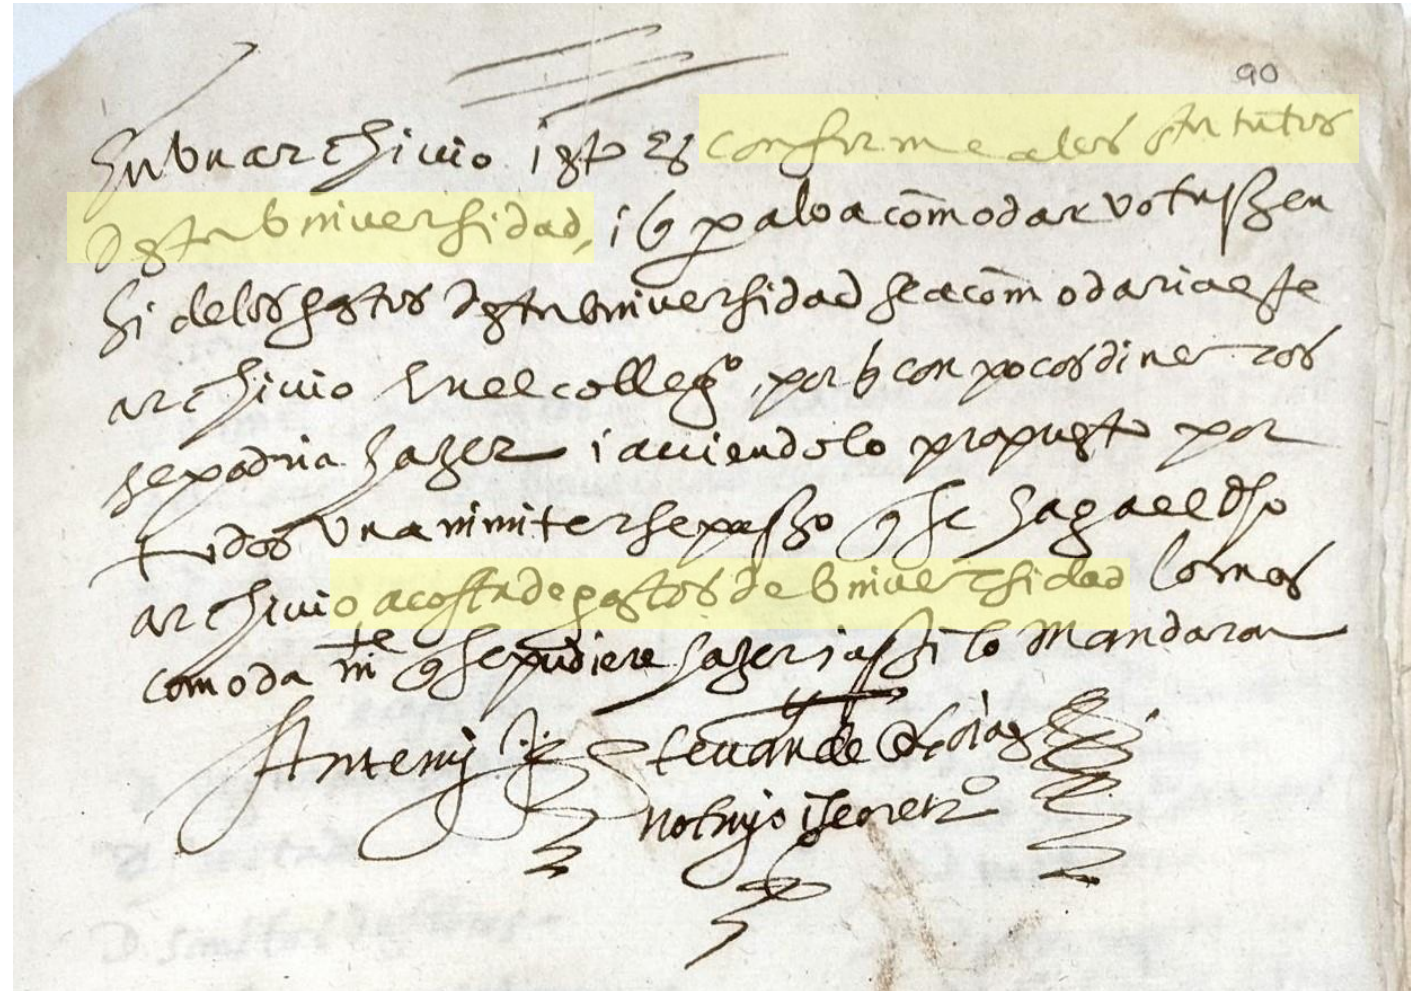 90
en un archivio i esto es conforme a los statutos
desta universidad, i q para lo acōmodar votassen
si de los gastos desta universidad se acōmodaria este
archivio en el collegº, por q con pocos dineros
se podria hazer i aviendolo propuesto por
todos unanimiter se passo q se haga el dho
archivio, a costa de gastos de universidad lo mas
comodamte q se pudiere hazer i assi lo mandaron
Ante mi
notario i secretº